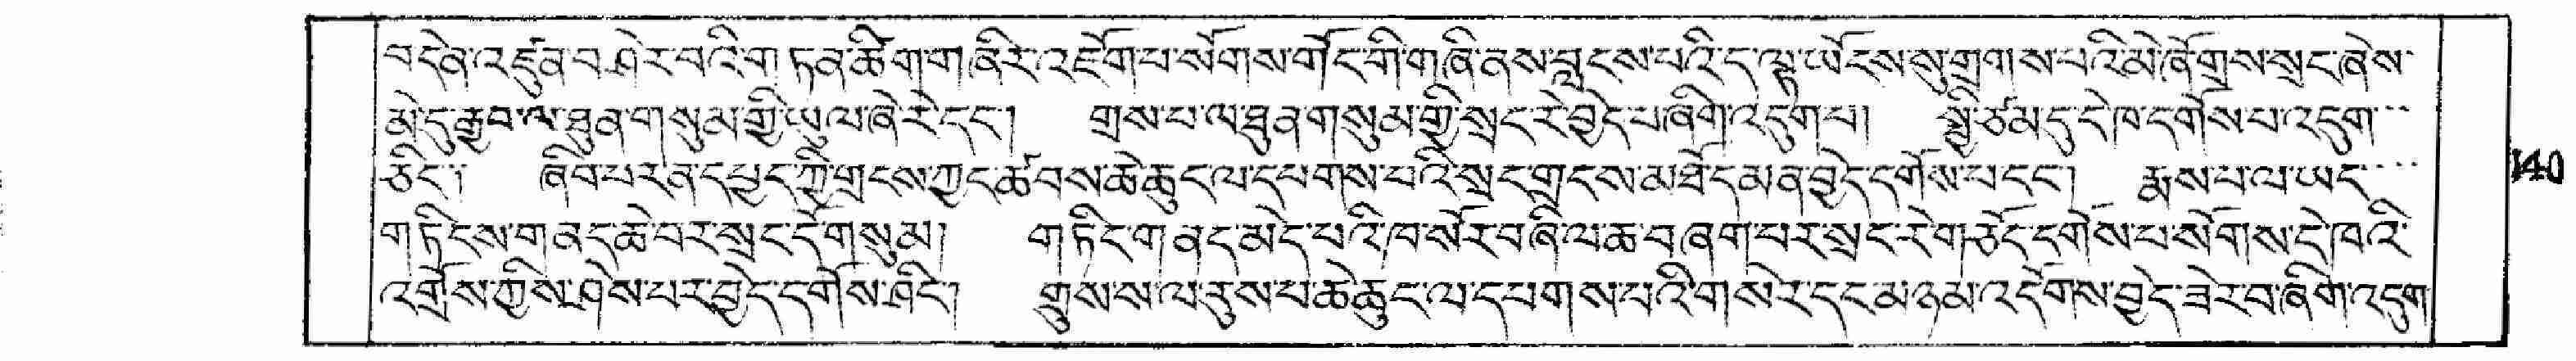 བདེན་འཛུན་བཤེར་བའི་གཏན་ཚིགག་ཞིར་འཇོག་པ་སོགས་གོང་གི་གཞི་ནས་བླངས་པའི་ད་ལྟ་ཡོངས་སུ་གྲགས་པའི་མེ་ཞོ་གྲས་སྲང་ཞེས་
མེ་དུ་རྒྱབ་ལ་ཐུན་གསུམ་གྱི་ཡུལ་ཞེ་རེ་དང་། གྲས་པ་ལ་ཐུན་གསུམ་གྱི་སྲང་རེ་བྱེད་པ་ཞིག་འདུག་པ། སྤྱི་ཙམ་དུ་དེ་ཁ་དགོས་པ་འདུག་
ཅིང་། ཞིབ་པར་ན་དཔྱད་ཀྱི་གྲངས་ཀྱང་ཚབས་ཆེ་ཆུང་ལ་དཔགས་པའི་སྲང་གྲངས་མཐོ་དམན་བྱེད་དགོས་པ་དང་། རྨས་པ་ལ་ཡང་
གཏིངས་གནད་ཆེ་བར་སྲང་དོ་གསུམ། གཏིང་གནད་མེད་པའི་ཁ་སོར་བཞི་ལ་ཆ་བཞག་པར་སྲང་རེ་གཅོད་དགོས་པ་སོགས་དེ་ཁའི་
འགྲོས་ཀྱིས་ཤེས་པར་བྱེད་དགོས་ཤིང་། གྲུས་ས་ལ་ནུས་པ་ཆེ་ཆུང་ལ་དཔགས་པའི་གསེར་དང་མཉམ་འདོགས་བྱེད་ཟེར་བ་ཞིག་འདུག
140